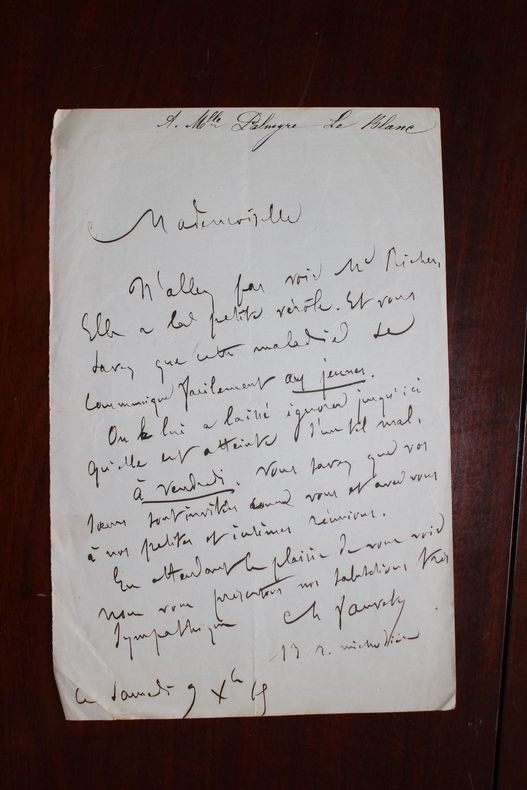 A. Mlle Palmyre Le Blanc
Mademoiselle
N'allez pas voir Me Richer,
Elle a la petite vérole. Et vous
savez que cette maladie se
communique facilement aux jeunes.
On lui a laissé ignorer jusqu'ici
qu'elle est atteinte d'un tel mal.
à vendredi. Vous savez que vos
sœurs sont invitées comme vous et avec vous
à nos petites et intimes réunions.
En attendant le plaisir de vous voir
nous vous présentons nos salutations très
sympathiques Ch Fauvety
13 r. michodière
ce samedi 9 Xbre